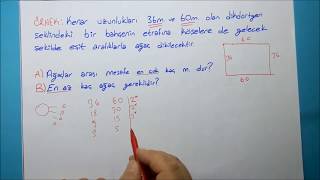 ÖRNEK: Kenar uzunlukları 36m ve 60m olan dikdörtgen
şeklindeki bir bahçenin etrafına köşelere de gelecek
şekilde eşit aralıklarla ağaç dikilecektir.
36
A) Ağaçlar arası mesafe en çok kaç m. dir?
B) En az kaç ağaç gereklidir?
60
36 60 2
18 30 2
9 15
3 5